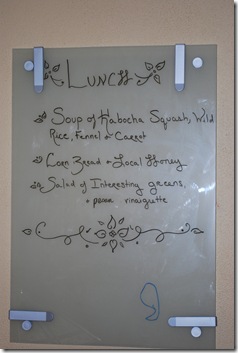 LUNCH
Soup of Kabocha Squash, Wild
Rice, Fennel & Carrot
Corn Bread & Local Honey
Salad of Interesting greens,
+ pecan vinaigutte